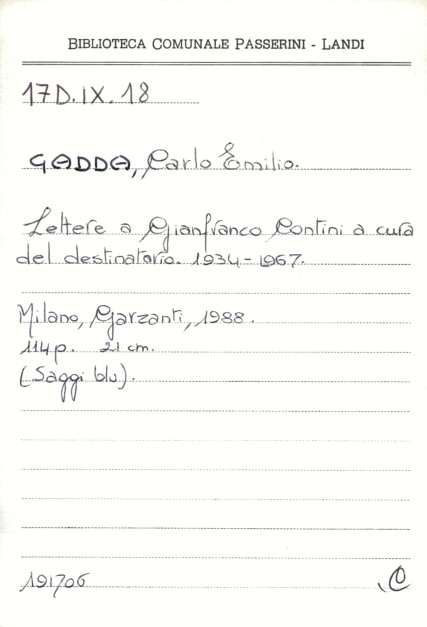 BIBLIOTECA COMUNALE PASSERINI - LANDI
17D.IX.18
GADDA, Carlo Emilio.
Lettere a Gianfranco Contini a cura
del destinatario. 1934-1967.
Milano, Garzanti, 1988.
114 p. 21 cm.
(Saggi blu).
191706